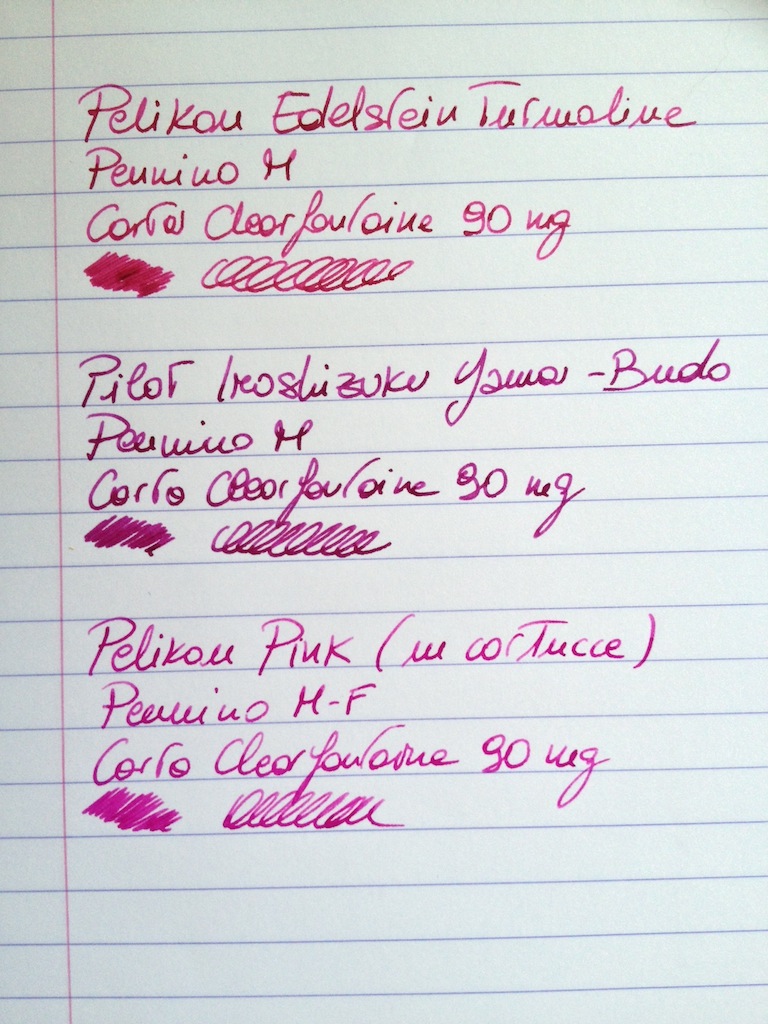 Pelikan Edelstein Turmaline
Pennino M
Carta Clearfontaine 90 mg
Pilot Iroshizuku Yama-Budo
Pennino M
Carta Clearfontaine 90 mg
Pelikan Pink (in cartucce)
Pennino M-F
Carta Clearfontaine 90 mg